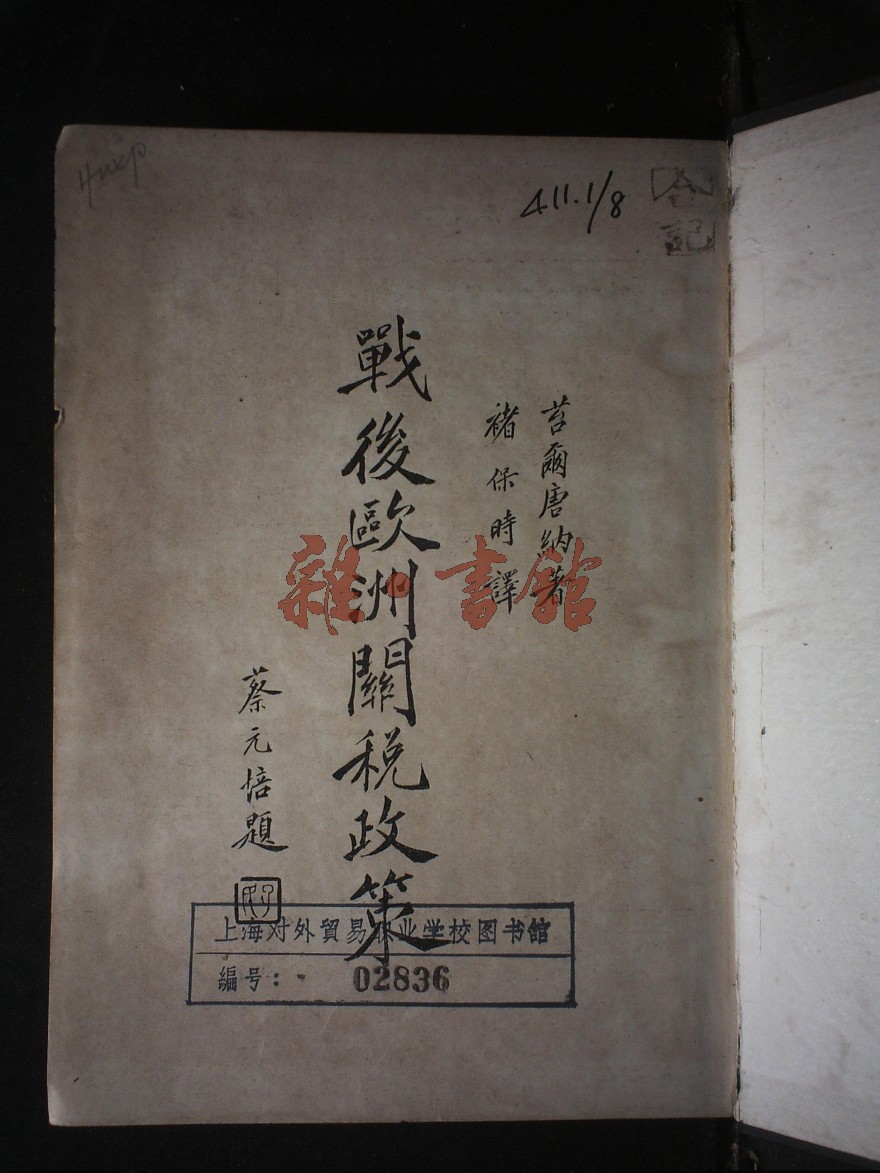 411.1/8
苔爾唐納著
褚保時譯
戰後歐洲關税政策
蔡元培題
雜·書館
上海对外貿易职业学校图书館
編号：
02836